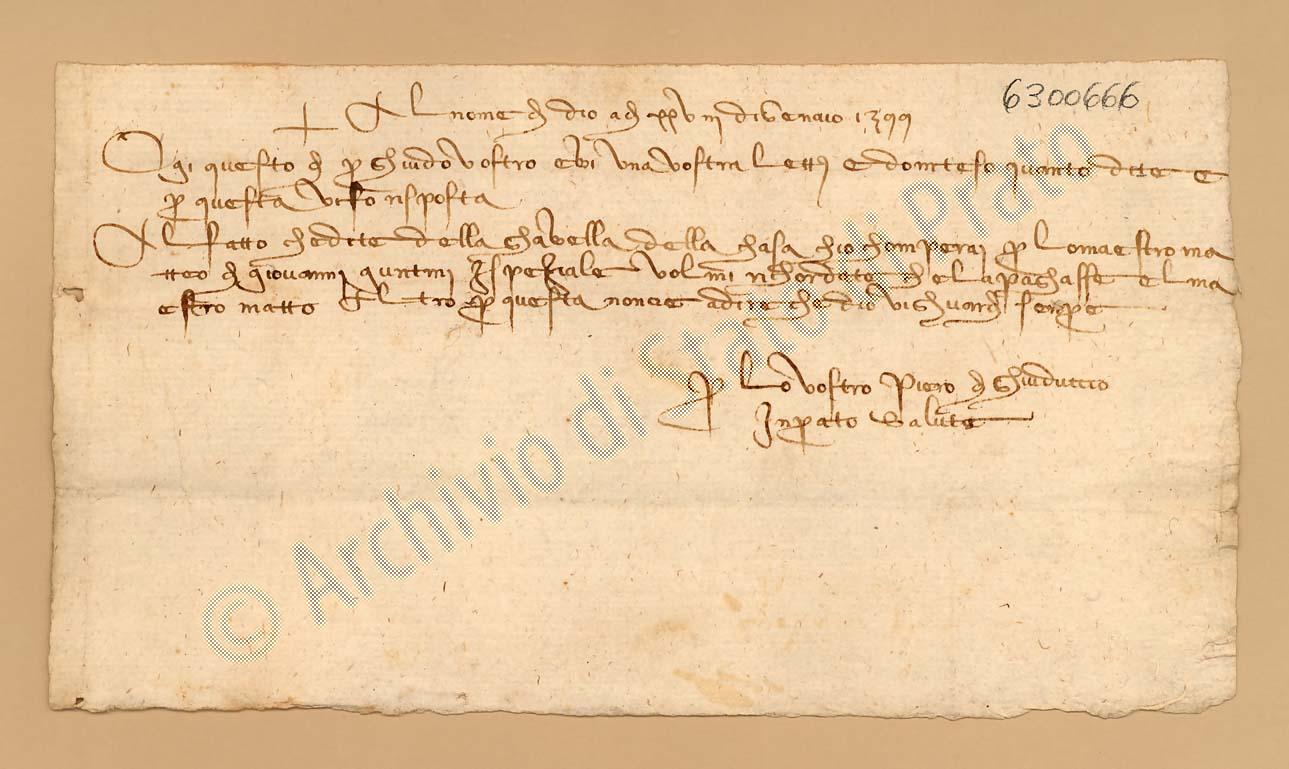 6300666
+ Al nome di dio adì XXVIII di Genaio 1399
Ogi questo dì p Ghuido vostro ebi una vostra lettera e dointeso quanto dite e
p questa vi fo risposta
Al fatto che dite della ghabella della chasa chio chomperai p lo maestro ma
tteo di giovanni ispeziale richordate che la paghasse el ma
estro matteo Altro p questa non cie a dire che dio vi ghuardi senpre
p lo vostro Piero di Ghuiduccio
In prato salute
© Archivio di Stato di Prato